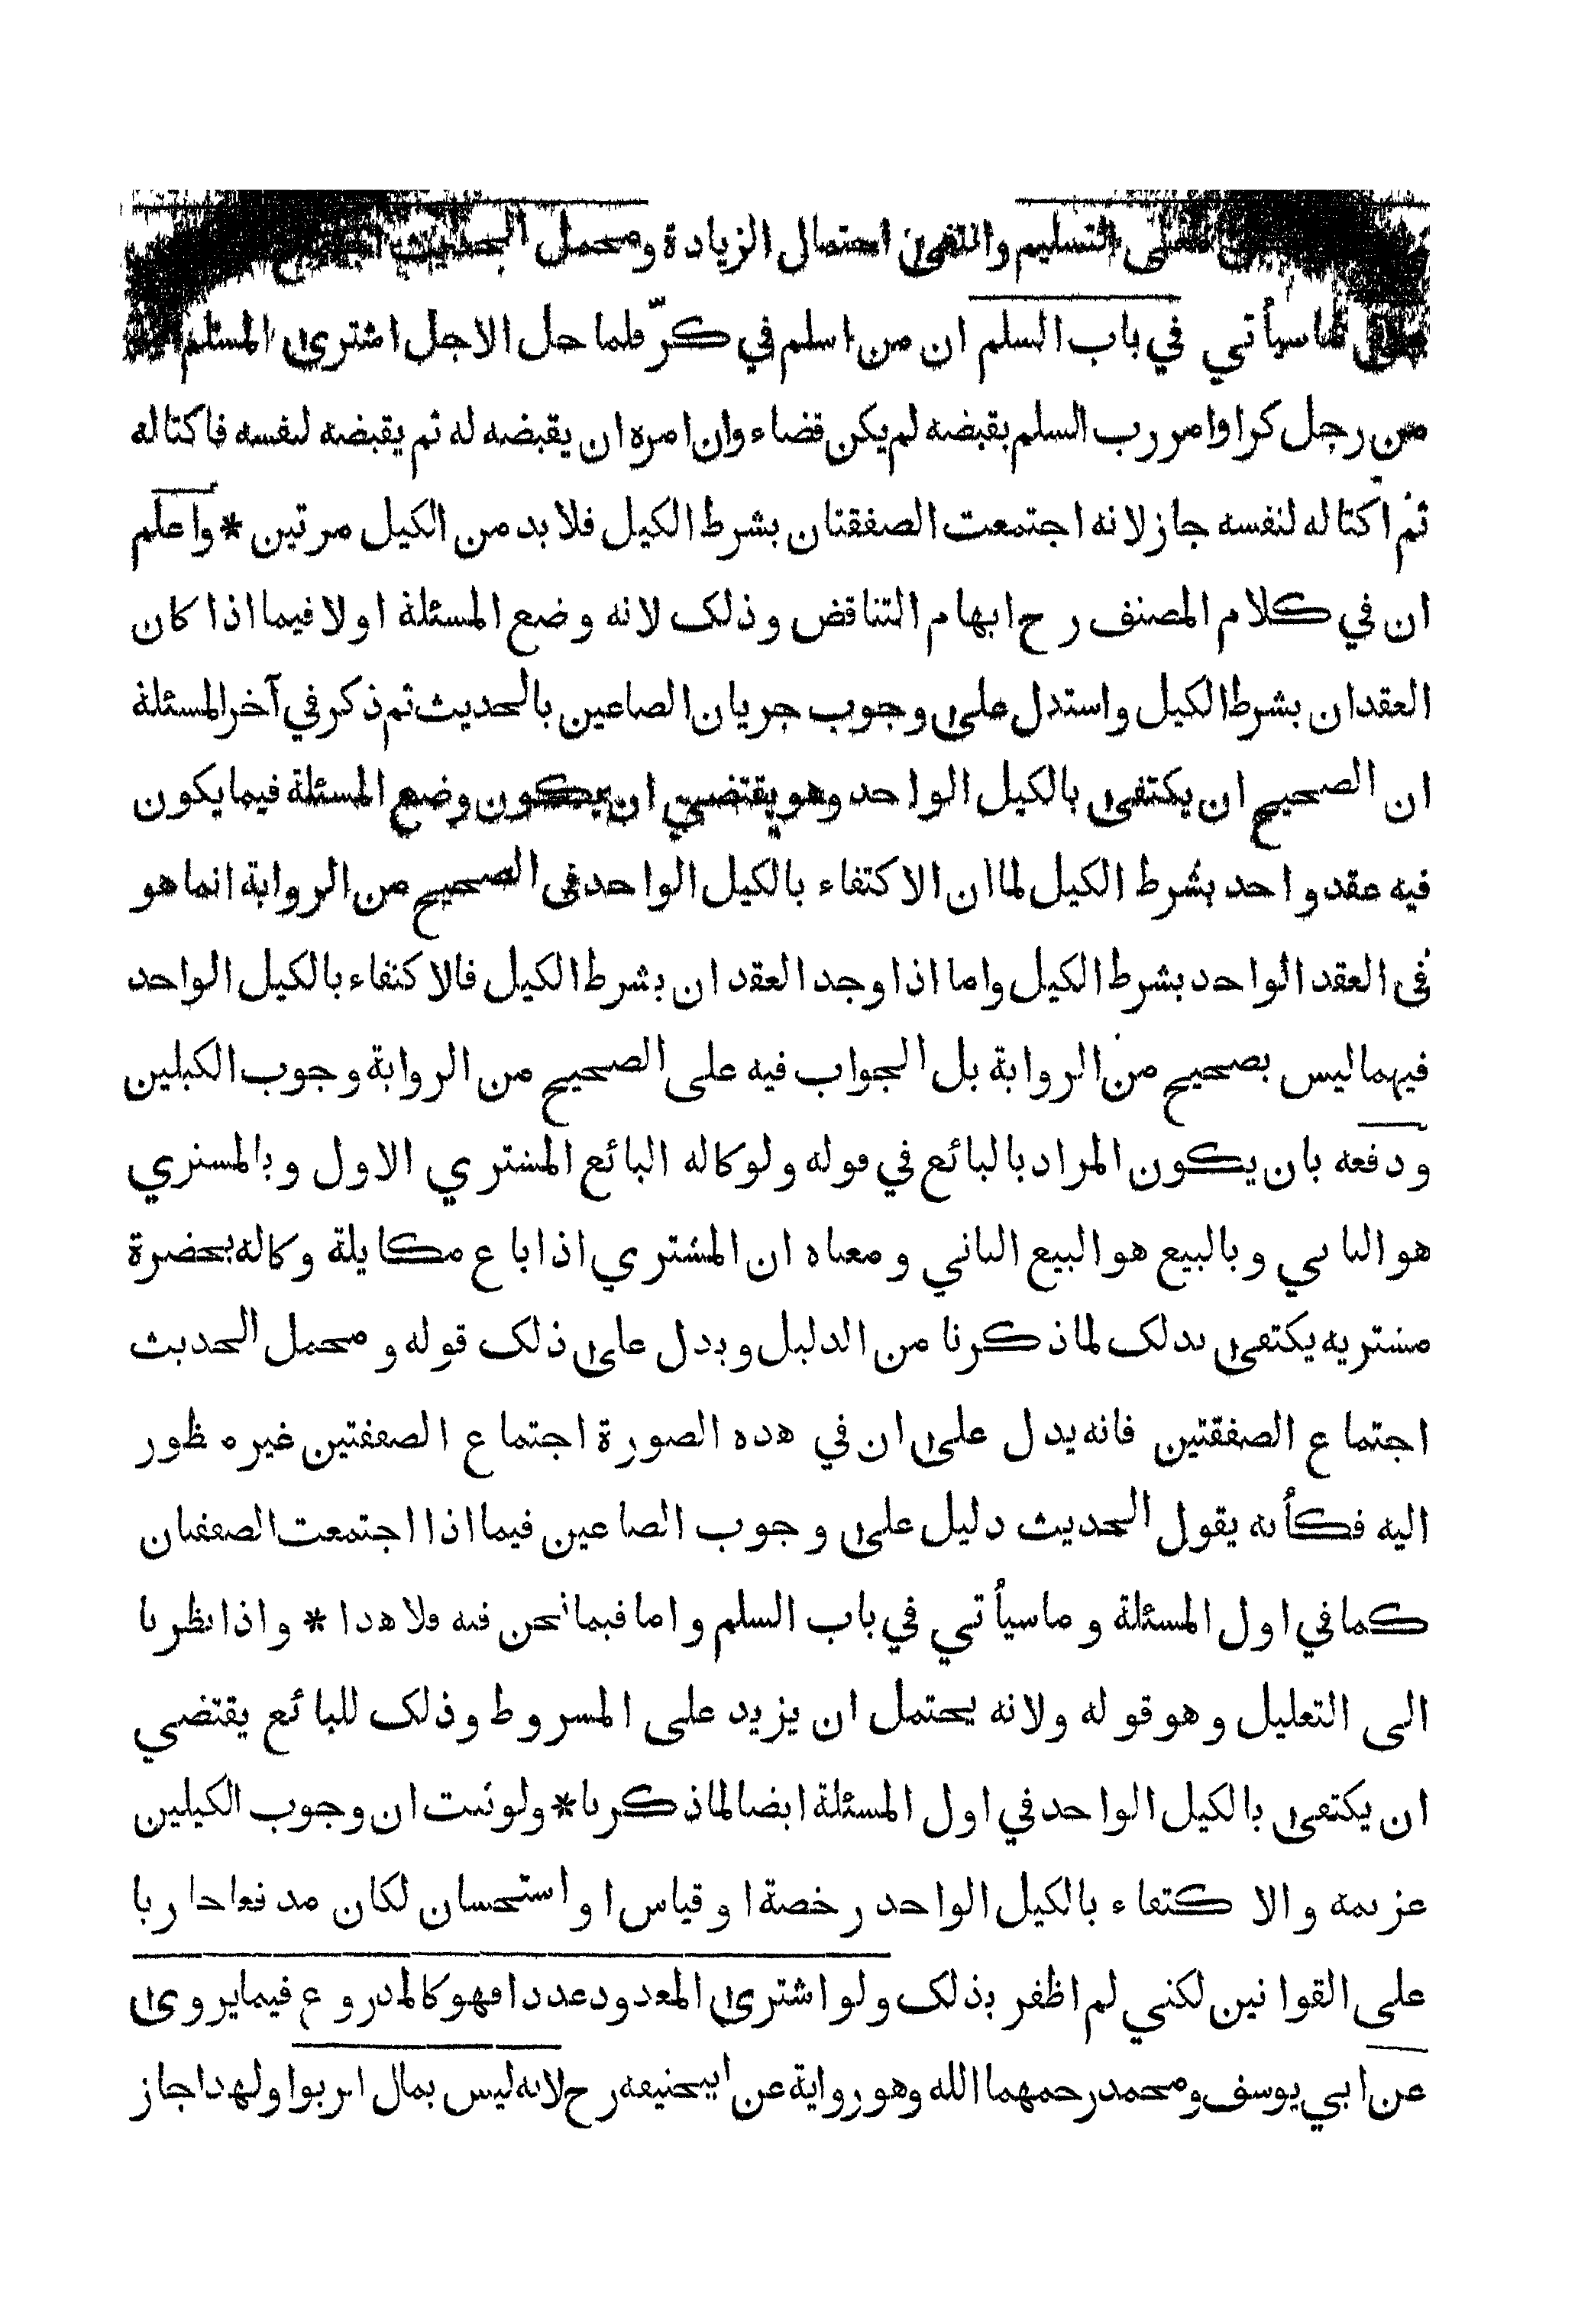 معنى التسليم وانتفى احتمال الزيادة ومحمل الحديث اجتماع
على ماسيأتي في باب السلم ان من اسلم في كرّ فلما حل الاجل اشترى المسلم
من رجل كرا وامر رب السلم بقبضه لم يكن قضاء وان امره ان يقبضه له ثم يقبضه لنفسه فاكتاله
ثم اكتاله لنفسه جاز لانه اجتمعت الصفقتان بشرط الكيل فلا بد من الكيل مرتين * واعلم
ان في كلام المصنف رح ايهام التناقض وذلك لانه وضع المسئلة اولا فيما اذا كان
العقدان بشرط الكيل واستدل على وجوب جريان الصاعين بالحديث ثم ذكر في آخر المسئلة
ان الصحيح ان يكتفى بالكيل الواحد وهو يقتضي ان يكون وضع المسئلة فيما يكون
فيه عقد واحد بشرط الكيل لما ان الاكتفاء بالكيل الواحد في الصحيح من الرواية انما هو
في العقد الواحد بشرط الكيل واما اذا وجد العقدان بشرط الكيل فالاكتفاء بالكيل الواحد
فيهما ليس بصحيح من الرواية بل الجواب فيه على الصحيح من الرواية وجوب الكيلين
ودفعه بان يكون المراد بالبائع في قوله ولو كاله البائع المشتري الاول وبالمشتري
هو الثاني وبالبيع هو البيع الثاني ومعناه ان المشتري اذا باع مكايلة وكاله بحضرة
مشتريه يكتفى بذلك لما ذكرنا من الدليل ويدل على ذلك قوله ومحمل الحديث
اجتماع الصفقتين فانه يدل على ان في هذه الصورة اجتماع الصفقتين غير منظور
اليه فكأنه يقول الحديث دليل على وجوب الصاعين فيما اذا اجتمعت الصفقتان
كما في اول المسئلة وماسيأتي في باب السلم واما فيما نحن فيه فلا هذا * واذا نظرنا
الى التعليل وهو قوله ولانه يحتمل ان يزيد على المشروط وذلك للبائع يقتضي
ان يكتفى بالكيل الواحد في اول المسئلة ايضا لما ذكرنا * ولو ثبت ان وجوب الكيلين
عزيمة والاكتفاء بالكيل الواحد رخصة او قياس او استحسان لكان مدفعا جاريا
على القوانين لكني لم اظفر بذلك ولو اشترى المعدود عددا فهو كالمذروع فيما يروى
عن ابي يوسف ومحمد رحمهما الله وهو رواية عن ابيحنيفه رح لانه ليس بمال الربوا ولهذا جاز